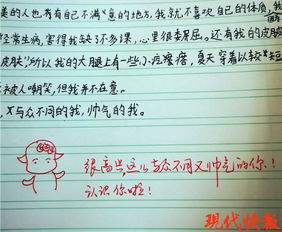 美的人也有自己不满意的地方，我就不喜欢自己的体质，我
经常生病，害得我缺了不多课，心里很委屈。还有我的皮肤
皮肤"所以我的大腿上有一些小疙瘩，夏天穿着比较短
被人嘲笑，但我并不在意。
，又与众不同的我，帅气的我。
很高兴，这么与众不同又帅气的你，！
认识你啦！
现代快报